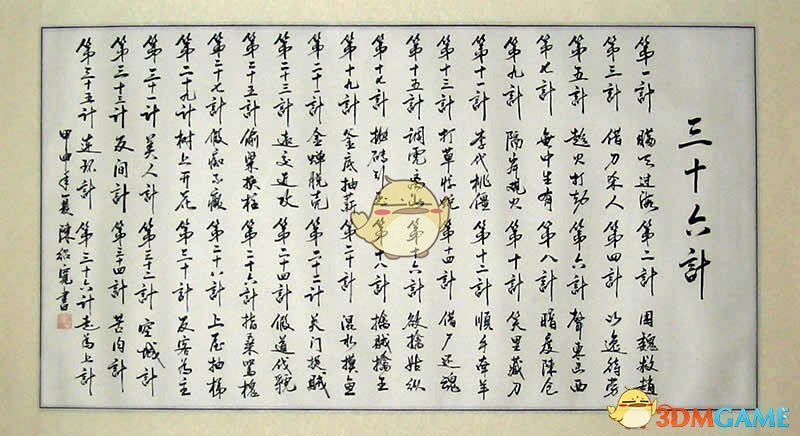 三十六計
第一計 瞒天过海 第二計 围魏救趙
第三計 借刀杀人 第四計 以逸待劳
第五計 趁火打劫 第六計 聲東击西
第七計 無中生有 第八計 暗度陈仓
第九計 隔岸观火 第十計 笑里藏刀
第十一計 李代桃僵 第十二計 順手牵羊
第十三計 打草惊蛇 第十四計 借尸还魂
第十五計 調虎 第十六計 欲擒姑纵
第十七計 抛砖引 第十八計 擒贼擒王
第十九計 釜底抽薪 第二十計 混水摸鱼
第二十一計 金蝉脱壳 第二十二计 关门捉贼
第二十三計 远交近攻 第二十四計 假道伐虢
第二十五計 偷梁换柱 第二十六計 指桑骂槐
第二十七計 假痴不癫 第二十八計 上屋抽梯
第二十九計 树上开花 第三十計 反客为主
第三十一計 美人計 第三十二計 空城計
第三十三計 反间計 第三十四計 苦肉計
第三十五計 连环計 第三十六計 走为上計
甲申年夏 陳 書
3DMGAME